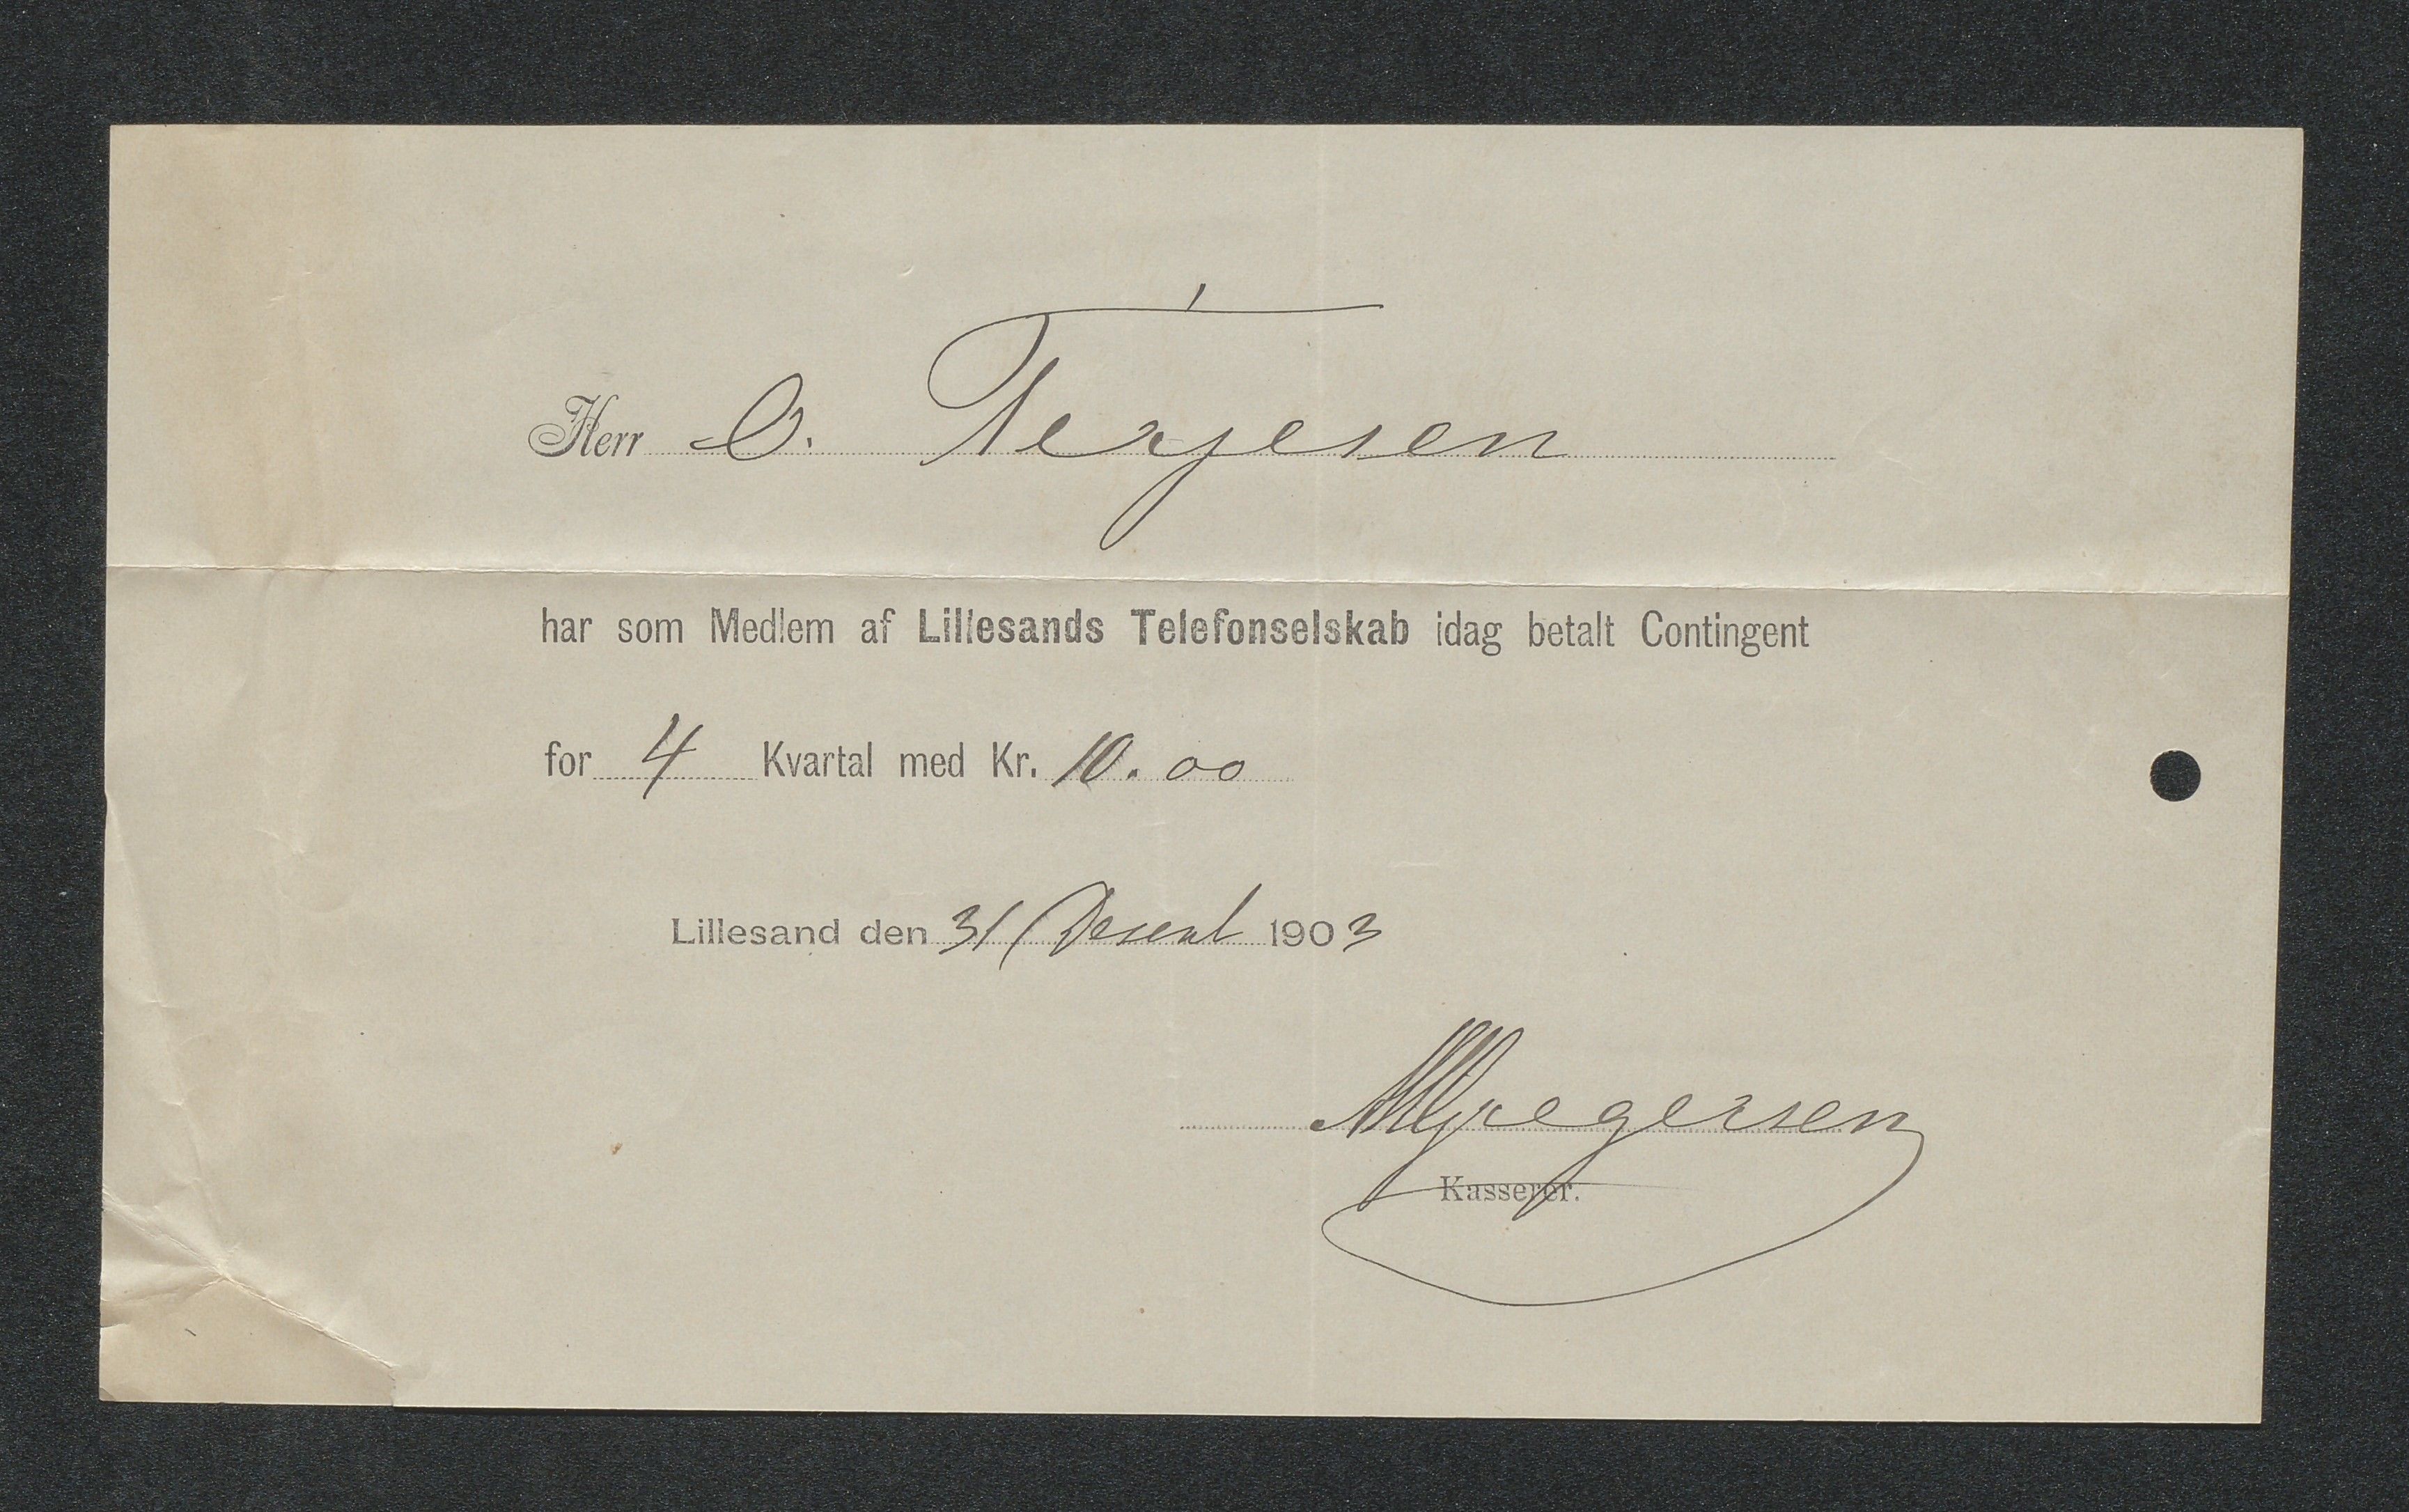 Herr O. Terjesen
har som Medlem af Lillesands Telefonselskab idag betalt Contingent
for 4 Kvartal med Kr. 10.00
Lillesand den 31/ Desent 1903
Kasserer.